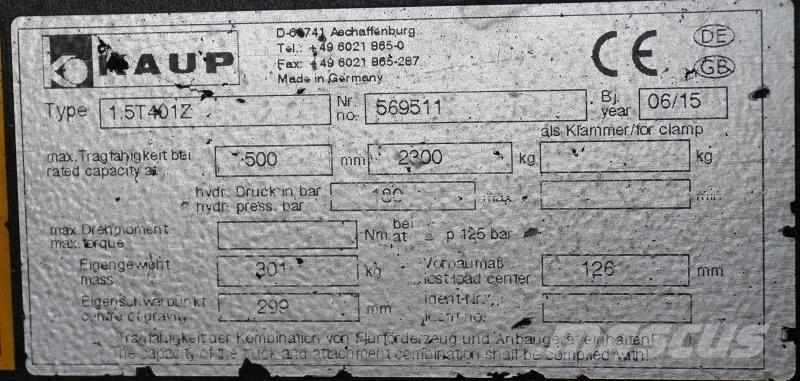 KAUP
D-63741 Aschaffenburg
Tel.: +49 6021 865-0
Fax: +49 6021 865-287
Made in Germany
CE
DE
GB
Type 1.5T401Z Nr. no. 569511 Bj. year 06/15
als Klammer/for clamp
max. Tragfähigkeit bei 500 mm 2300 kg kg
rated capacity at
hydr. Druck in bar 180 max min.
hydr. press. bar
max. Drehmoment Nm bei p 125 bar
max. torque at
Eigengewicht 301 kg Vorbaumaß 126 mm
mass lost load center
Eigenschwerpunkt 299 mm Ident-Nr.
centre of gravity ident no.
Tragfähigkeit der Kombination von Flurförderzeug und Anbaugerät einhalten!
The capacity of the truck and attachment combination shall be complied with!